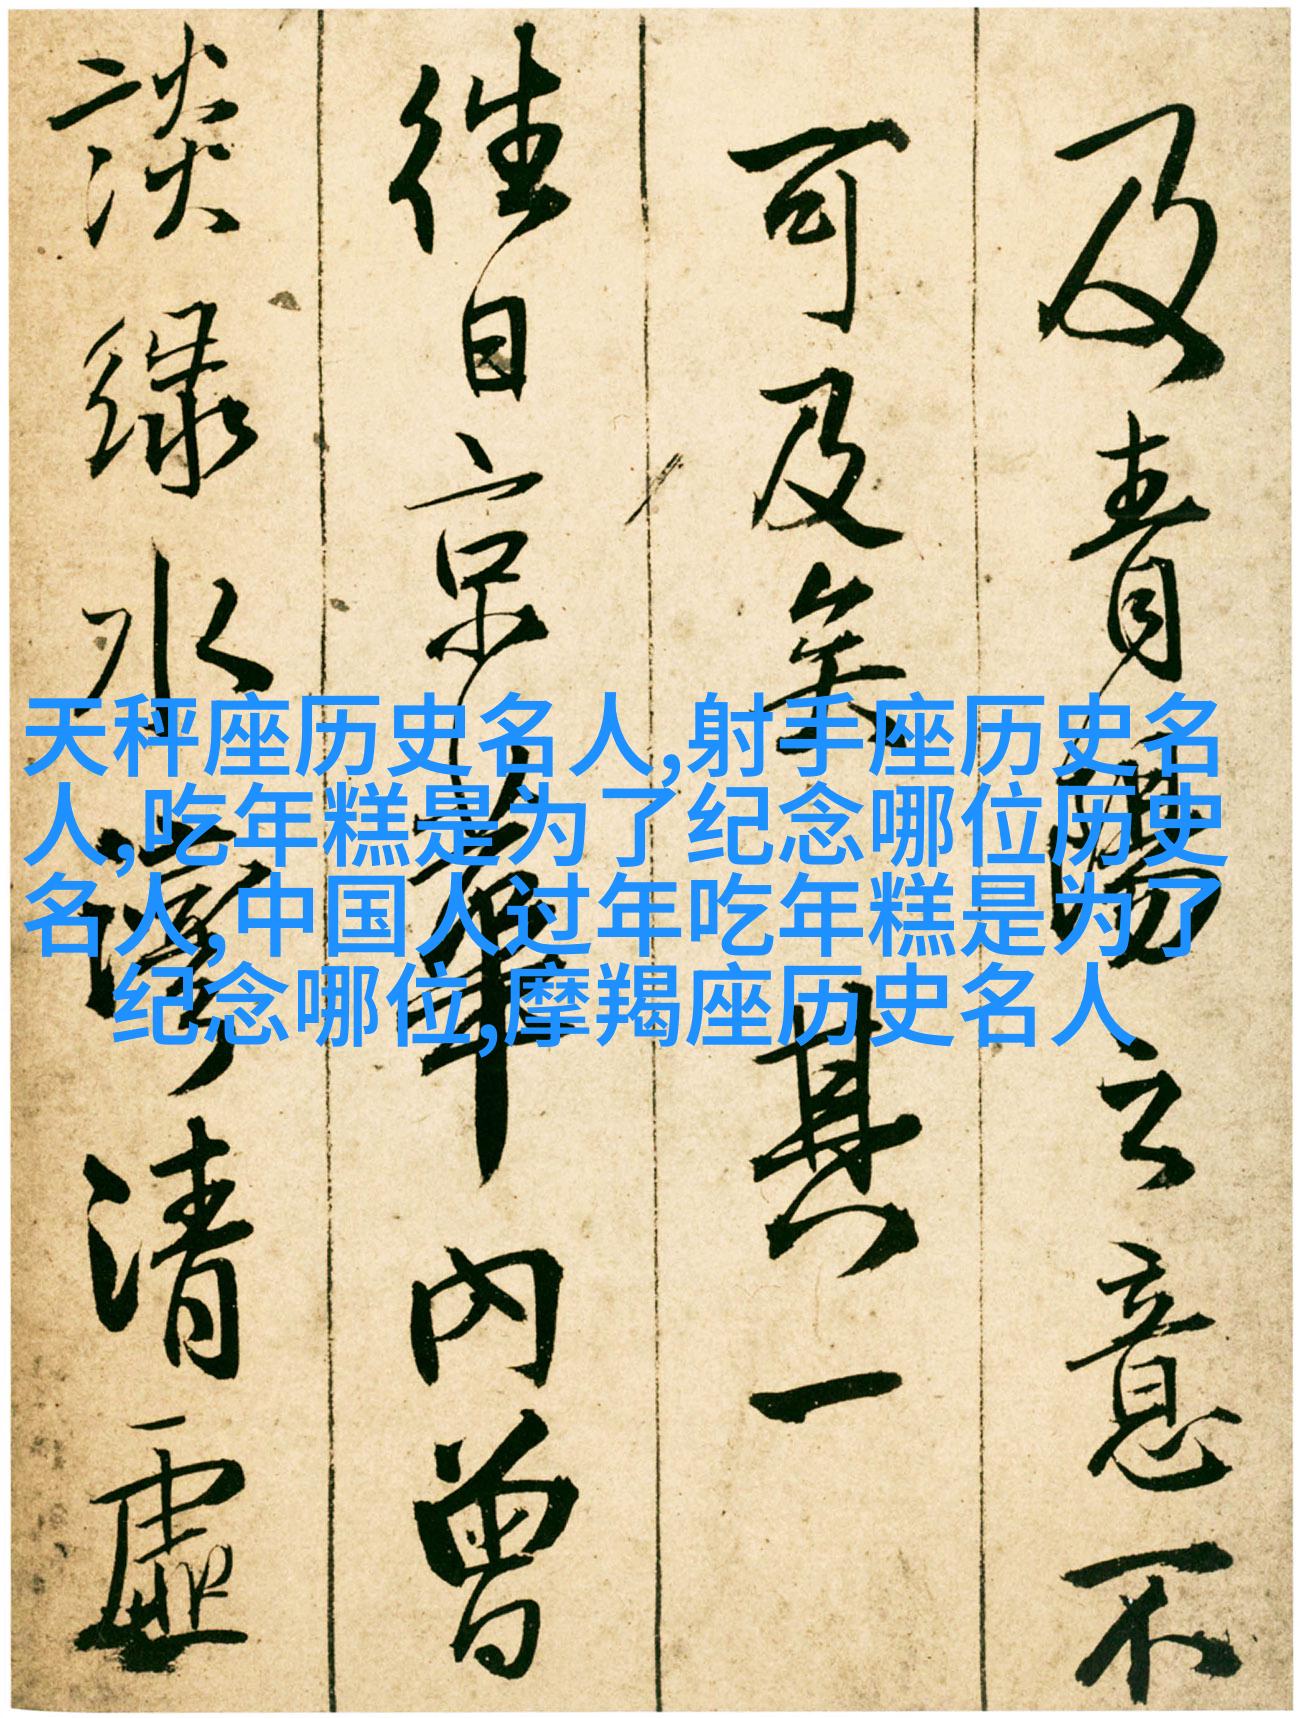 及青陽之意不
可及矣其一
往日京華內曾
談緑水灣清虛
天秤座历史名人,射手座历史名
人,吃年糕是为了纪念哪位历史
名人,中国人过年吃年糕是为了
纪念哪位,摩羯座历史名人